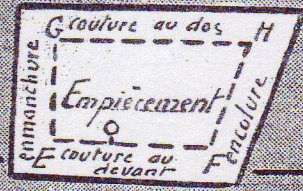 G couture au dos H
enmanchure
Empiècement
encolure
E couture au F
devant